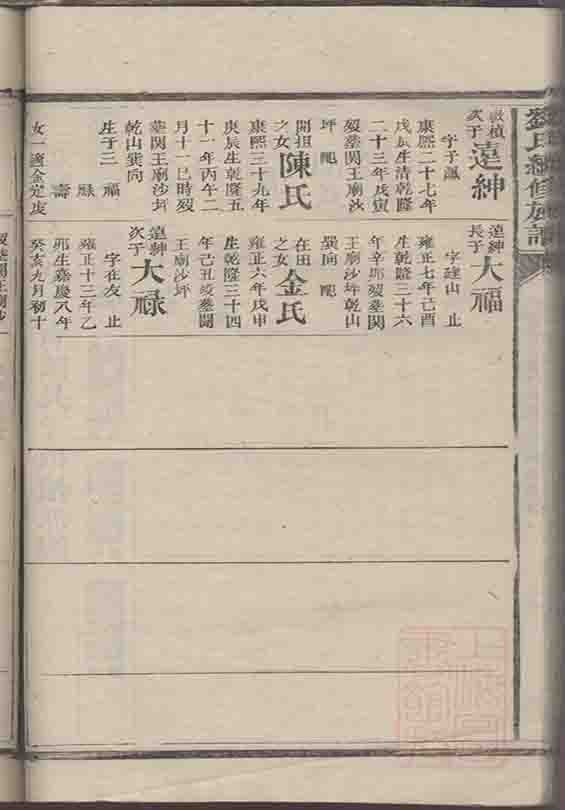 劉氏續修族譜
次子遠紳
字子諷
康熙二十七年
戊辰生清乾隆
二十三年戊寅
歿塟関王廟沙
坪 配
開担之女陳氏
康熙三十九年
庚辰生乾隆五
十一年丙午二
月十一巳時歿
塟関王廟沙坪
乾山巽向
生子三 福
祿
壽
女一適金定
遠紳長子大福
字建山 止
雍正七年己酉
生乾隆三十六
年辛卯歿塟関
王廟沙坪乾山
巽向 配
在田之女金氏
雍正六年戊申
生乾隆三十四
年己丑歿塟関
王廟沙坪
遠紳次子大禄
字在友 止
雍正十三年乙
卯生嘉慶八年
癸亥九月初十